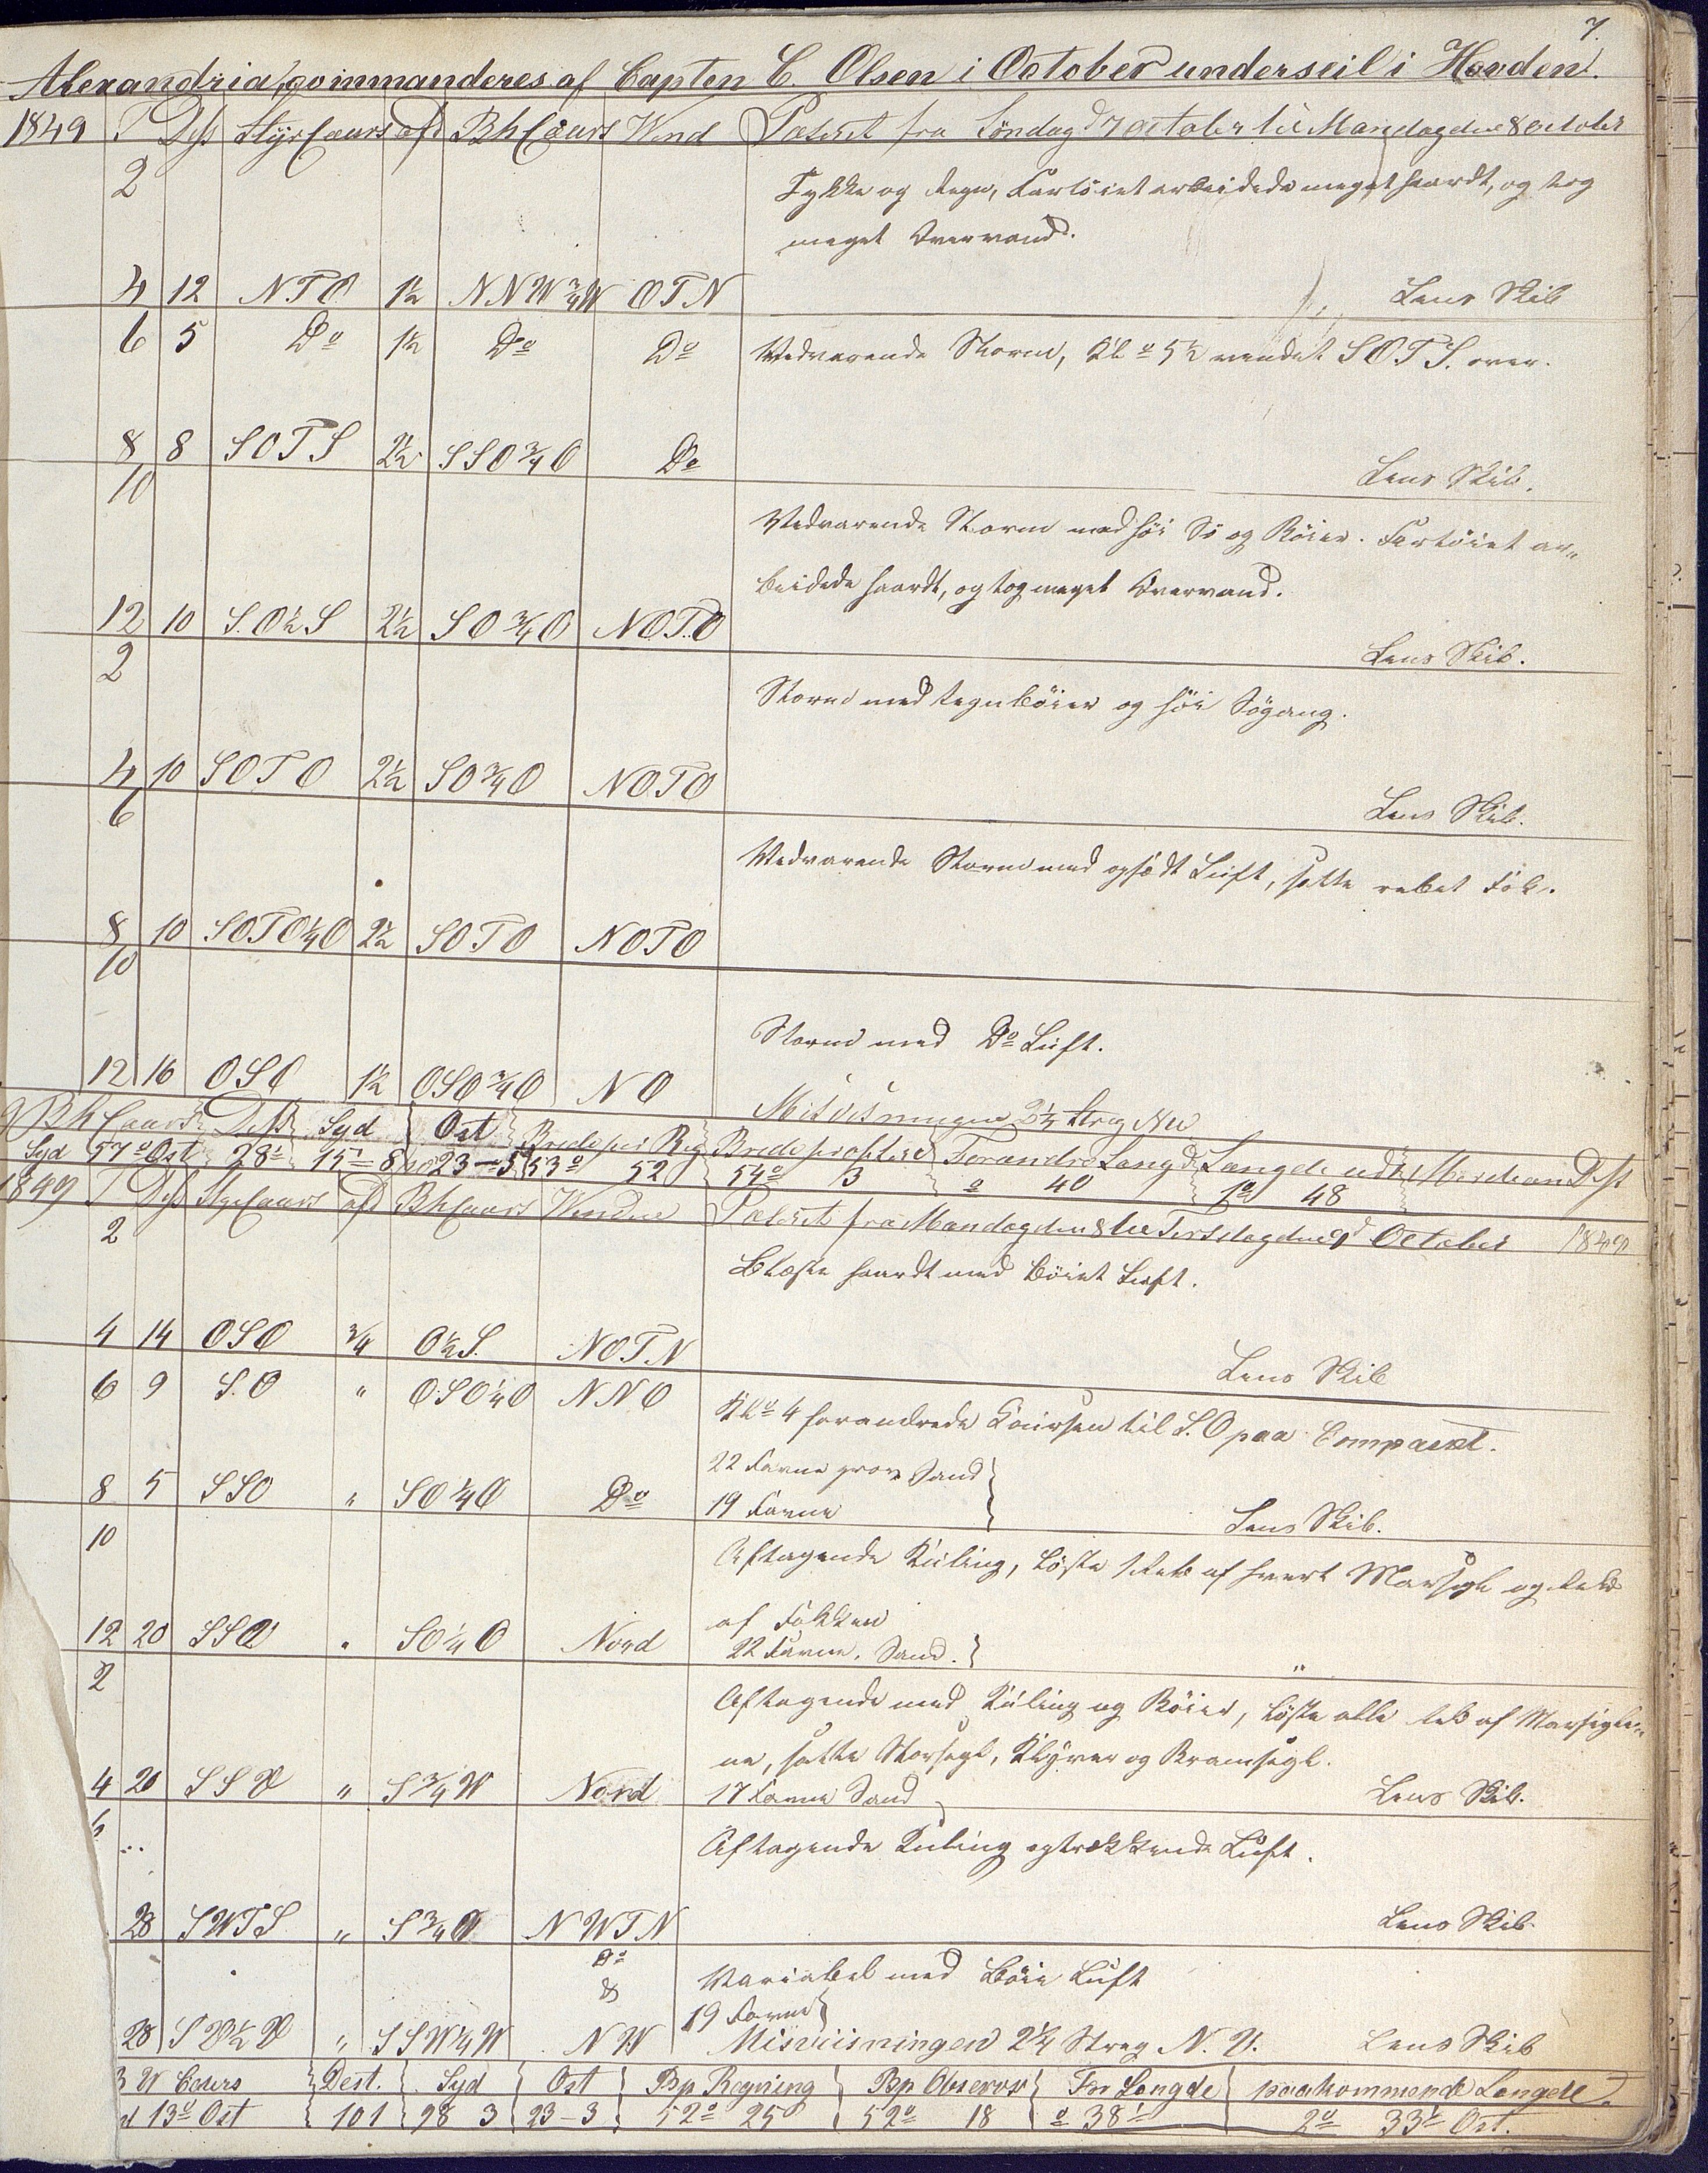 7.
Alexandria, commanderes af Capten C. Olsen i October underseil i Horden.
1849 T Dss StyrCours afd BhCours Wend Passeret fra Söndag d 7 October til Mandag den 8 October
2 Tykke og Regn, Fartöiet arbeidede meget haardt, og tog
meget Overvand.
4 12 NTO 1½ NNW¾W OTN Lens Skib
6 5 Do 1½ Do Do Vedvarende Storm, Kl o 5½ vendt SOTS. over.
8 8 SOTS 2½ SSO¾O Do Lens Skib.
10 Vedvarende Storm med höi Sö og Böier. Fartöiet ar„
beidede haardt, og tog meget Overvand.
12 10 S.O½S 2½ SO¾O NOTO Lens Skib.
2 Storm med Regnböier og höi Sögang.
4 10 SOTO 2½ SO¾O NOTO Lens Skib.
6 Vedvarende Storm med opfædt Luft, satte rebet Fok.
8 10 SOTO¼O 2½ SOTO NOTO
10 Storm med Do Luft.
12 16 OSO 1½ OSO¾O NO Misvisningen 2¼ Streg NW
BhCours Dest Syd Ost Brede per Reg Brede pr obserd Forandrd Langd Langde
Syd 57o Ost 28' 15'-8 23-5 53o 52 54o 3 o 40 1o 48
1849 T Dss StyrCours afd BhCours Wenden Passeret fra Mandag den 8 til Tirsdag den 9d October 1849
2 Blæste haardt med böiet Luft.
4 14 OSO ¾ O½S. NOTN Lens Skib
6 9 S.O „ OSO¼O NNO Kl o 4 forandrede Coursen til S.O paa Compasset.
22 Favne grov Sand
8 5 SSO „ SO¼O Do 19 Favne Lens Skib.
10 Aftagende Kuling, löste 1 Reb af hvert Marsegl og Reb
af Fokken
12 20 SSO „ SO¼O Nord 22 Favne. Sand. „
2 Aftagende med Kuling og Böier, löste alle Reb af Marseglene„
ne, satte Storsegl, Klyver og Bramsegl.
4 20 SSO „ S¾W Nord 17 Favne Sand Lens Skib.
6 Aftagende Kuling og trækkende Luft.
28 SWTS „ S¾O NWTN Lens Skib
Do
& Variabel med Böie Luft
19 Favne
28 „ SSW¼W NW Misviisningen 2¼ Streg N.V. Lens Skib
W Cours Dest. Syd Ost Bp Regning Bp Observer For Longde paakommende Longde
d 13o Ost 101 98 3 23-3 52o 25 52o 18 o 38' 2o 33' Ost.